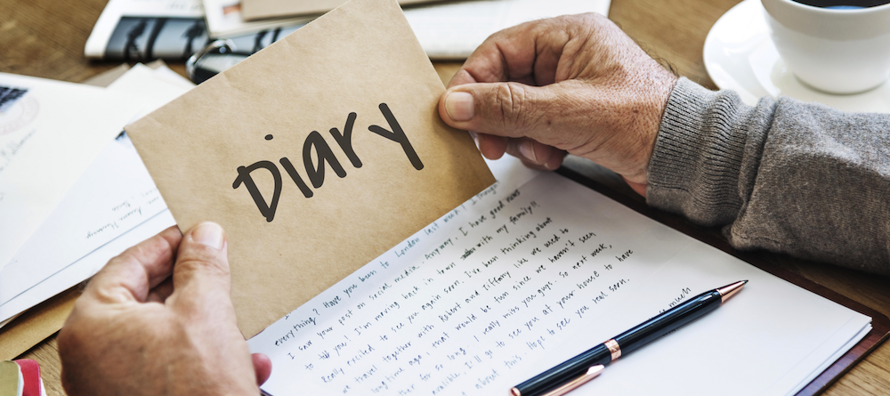 Diary
everything? Have you been to London last week. I
I saw your post on social media. Anyway, I have good news
to tell you! I'm moving back in town with my family!!
Really excited to see you again soon. I've been thinking about
we travel together with Robert and Tiffany like we used to
longtime ago, that would be fun since we haven't seen
ther for so long. I really miss you guys. So next week,
availble. I'll go to see you at your house to have
about this. Hope to see you real soon.
much